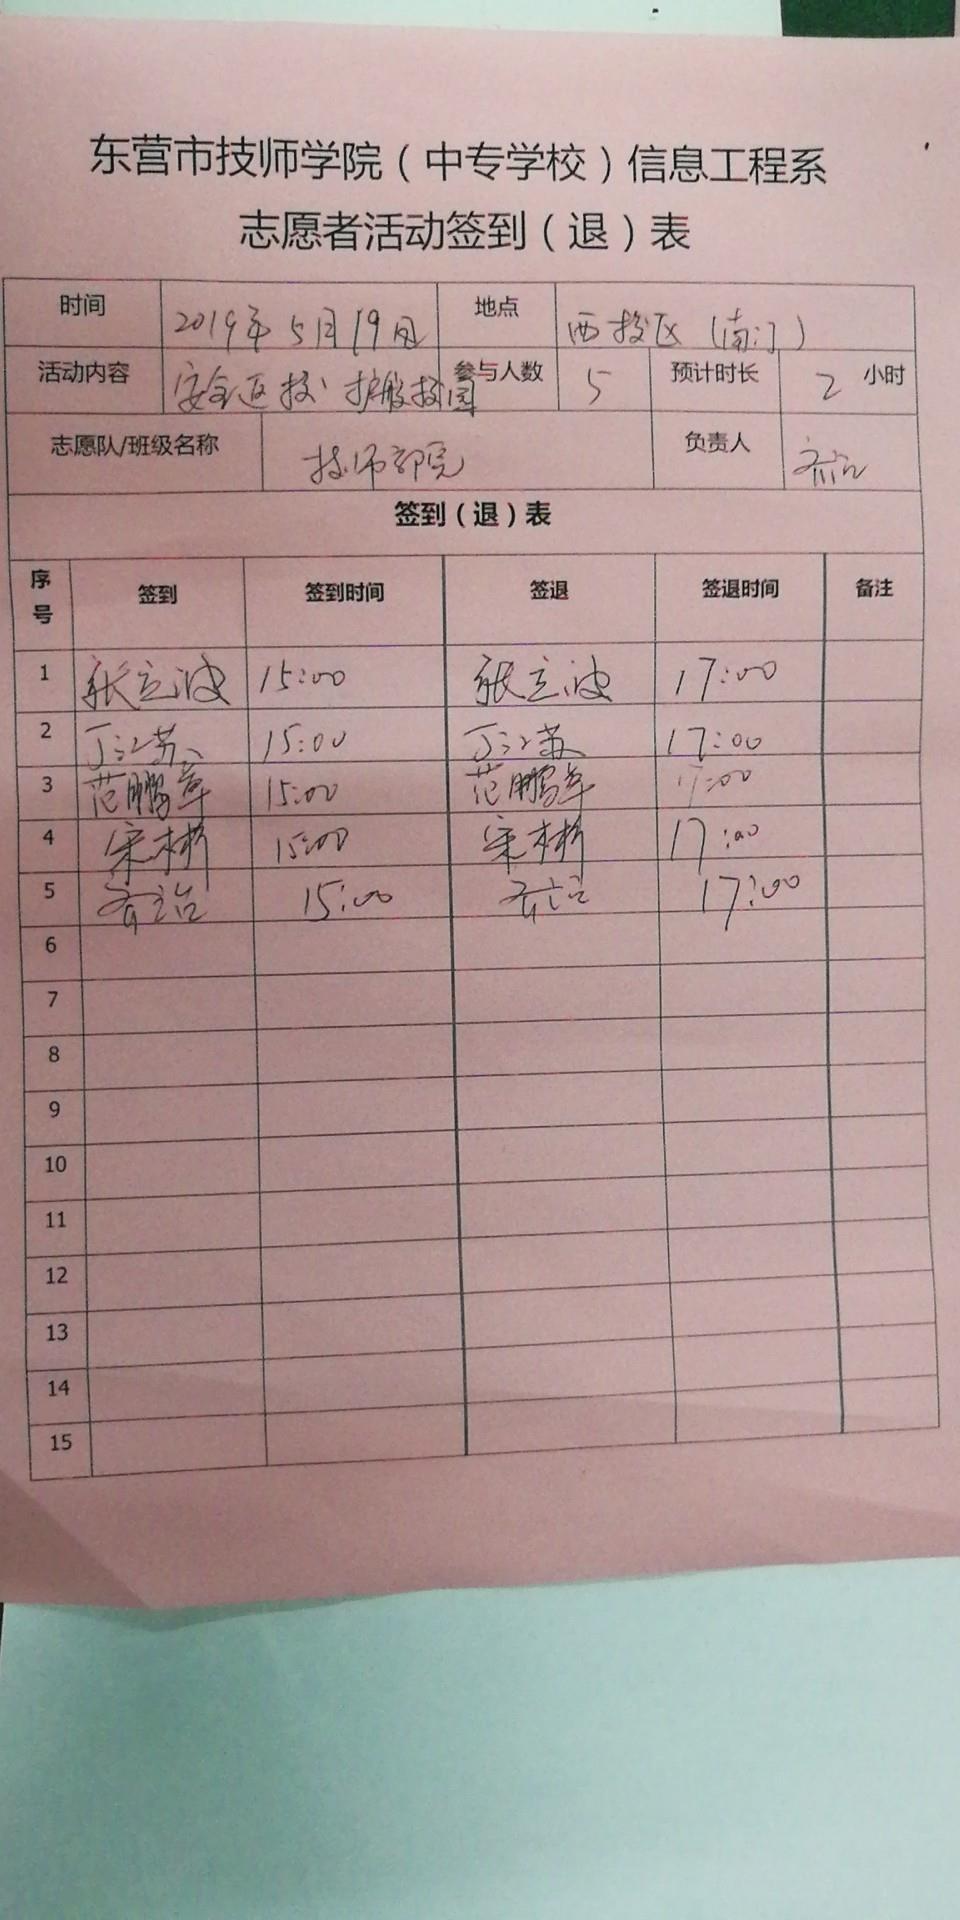 东营市技师学院（中专学校）信息工程系
志愿者活动签到（退）表
时间 2019年5月19日 地点 西校区（南门）
活动内容 安全返校 护航校园 参与人数 5 预计时长 2 小时
志愿队/班级名称 技师部院 负责人
签到（退）表
序号 签到 签到时间 签退 签退时间 备注
1 张立波 15:00 张立波 17:00
2 丁江苏 15:00 丁江苏 17:00
3 范鹏章 15:00 范鹏章 17:00
4 宋彬 15:00 宋彬 17:00
5 15:00 17:00
6
7
8
9
10
11
12
13
14
15